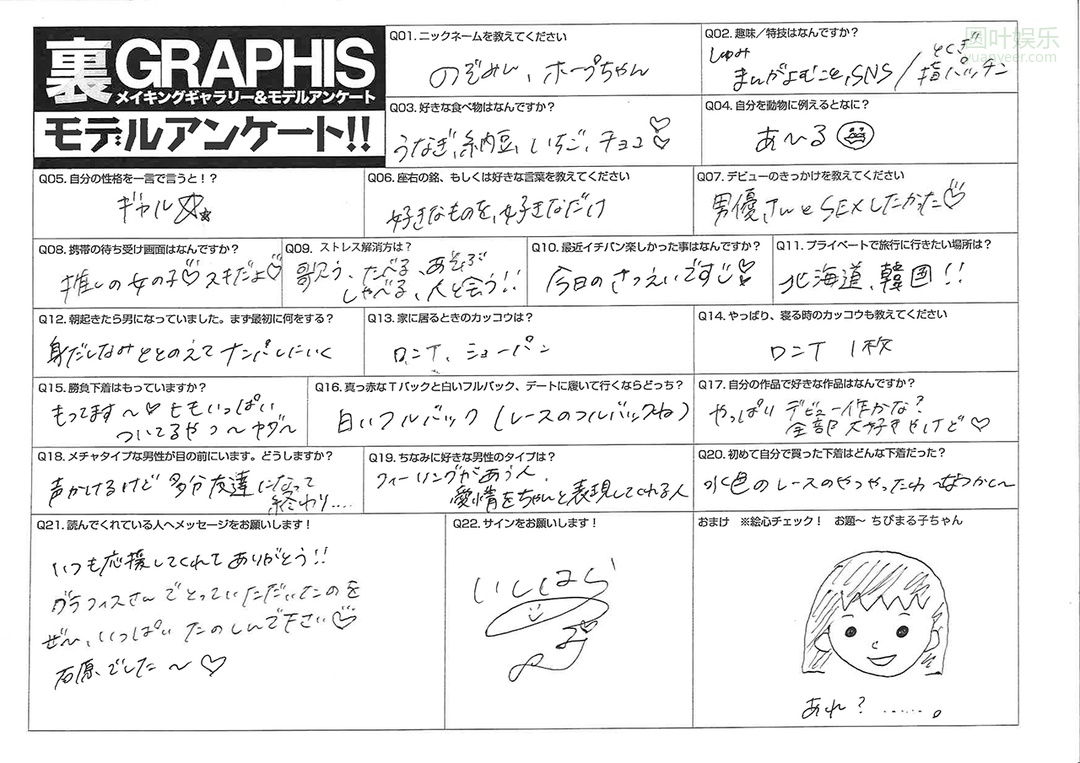 裏GRAPHIS
メイキングギャラリー&モデルアンケート
モデルアンケート!!
Q01. ニックネームを教えてください
のぞみん、ホープちゃん
Q02. 趣味/特技はなんですか?
しゅみ
まんがよむこと、SNS / とくぎ 指パッチン
Q03. 好きな食べ物はなんですか?
うなぎ、納豆、いちご、チョコ♡
Q04. 自分を動物に例えるとなに?
あ〜る
Q05. 自分の性格を一言で言うと!?
ギャル☆
Q06. 座右の銘、もしくは好きな言葉を教えてください
好きなものを、好きなだけ
Q07. デビューのきっかけを教えてください
男優さんとSEXしたかった♡
Q08. 携帯の待ち受け画面はなんですか?
推しの女の子♡スキだよ♡
Q09. ストレス解消方は?
歌う、たべる、あそぶ
しゃべる、人と会う!!
Q10. 最近イチバン楽しかった事はなんですか?
今日のさつえいです
Q11. プライベートで旅行に行きたい場所は?
北海道、韓国!!
Q12. 朝起きたら男になっていました。まず最初に何をする?
身だしなみととのえてナンパしにいく
Q13. 家に居るときのカッコウは?
ロンT、ショーパン
Q14. やっぱり、寝る時のカッコウも教えてください
ロンT 1枚
Q15. 勝負下着はもっていますか?
もってます〜♡ヒモいっぱい
ついてるやつ〜ヤダ〜
Q16. 真っ赤なTバックと白いフルバック、デートに履いて行くならどっち?
白いフルバック(レースのフルバックね)
Q17. 自分の作品で好きな作品はなんですか?
やっぱり デビュー作かな?
全部大好きやけど♡
Q18. メチャタイプな男性が目の前にいます。どうしますか?
声かけるけど 多分友達になって
終わり.....
Q19. ちなみに好きな男性のタイプは?
フィーリングがあう人、
愛情をちゃんと表現してくれる人
Q20. 初めて自分で買った下着はどんな下着だった?
水色のレースのやつやったわ〜なつかし〜
Q21. 読んでくれている人へメッセージをお願いします!
いつも応援してくれてありがとう!!
グラフィスさんでとっていただいたのを
ぜひ、いっぱい たのしんで下さい♡
石原でした〜♡
Q22. サインをお願いします!
いしはら
おまけ ※絵心チェック! お題〜 ちびまる子ちゃん
あれ?......。
圆叶娱乐
yuanyeer.com